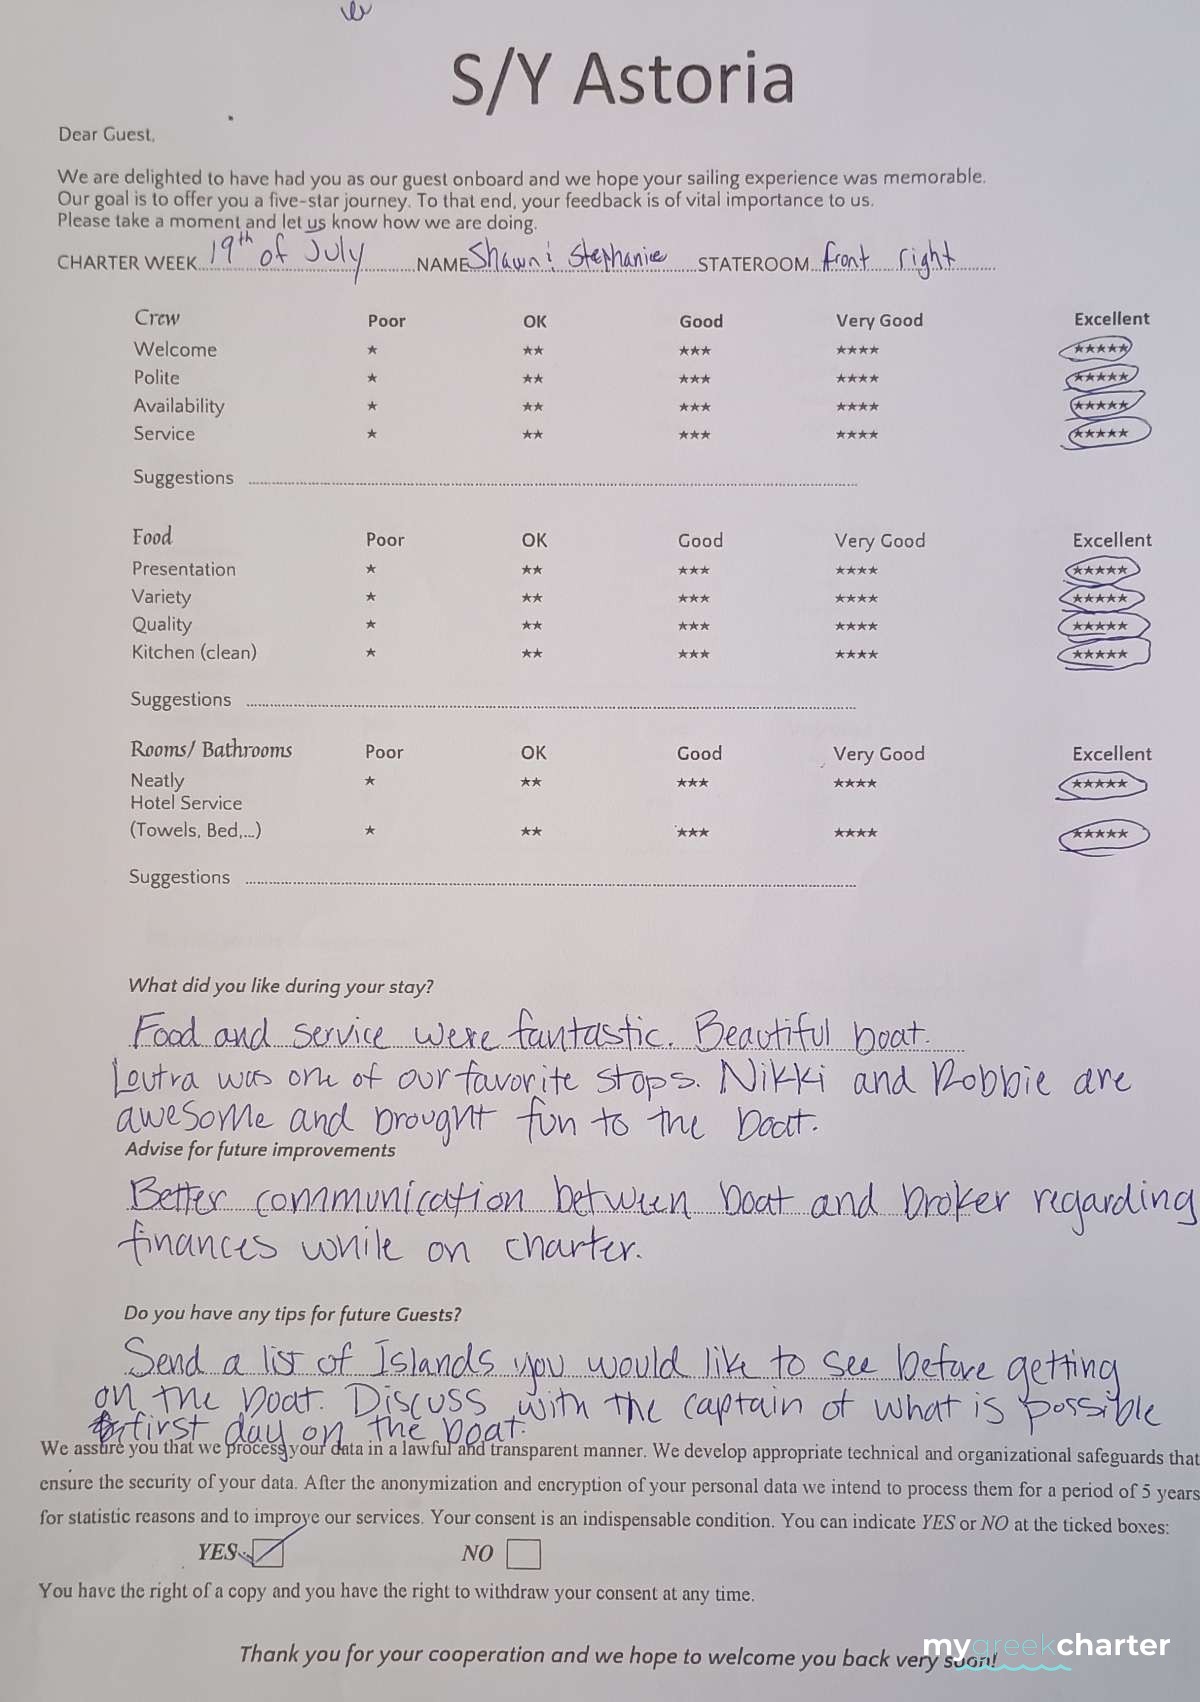 S/Y Astoria
Dear Guest,
We are delighted to have had you as our guest onboard and we hope your sailing experience was memorable.
Our goal is to offer you a five-star journey. To that end, your feedback is of vital importance to us.
Please take a moment and let us know how we are doing.
CHARTER WEEK 19th of July NAME Shawn & Stephanie STATEROOM front right
Crew Poor OK Good Very Good Excellent
Welcome ★ ★★ ★★★ ★★★★ ★★★★★
Polite ★ ★★ ★★★ ★★★★ ★★★★★
Availability ★ ★★ ★★★ ★★★★ ★★★★★
Service ★ ★★ ★★★ ★★★★ ★★★★★
Suggestions
Food Poor OK Good Very Good Excellent
Presentation ★ ★★ ★★★ ★★★★ ★★★★★
Variety ★ ★★ ★★★ ★★★★ ★★★★★
Quality ★ ★★ ★★★ ★★★★ ★★★★★
Kitchen (clean) ★ ★★ ★★★ ★★★★ ★★★★★
Suggestions
Rooms/ Bathrooms Poor OK Good Very Good Excellent
Neatly ★ ★★ ★★★ ★★★★ ★★★★★
Hotel Service
(Towels, Bed,...) ★ ★★ ★★★ ★★★★ ★★★★★
Suggestions
What did you like during your stay?
Food and service were fantastic. Beautiful boat.
Loutra was one of our favorite stops. Nikki and Robbie are
awesome and brought fun to the boat.
Advise for future improvements
Better communication between boat and broker regarding
finances while on charter.
Do you have any tips for future Guests?
Send a list of Islands you would like to see before getting
on the boat. Discuss with the captain of what is possible
first day on the boat.
We assure you that we process your data in a lawful and transparent manner. We develop appropriate technical and organizational safeguards that
ensure the security of your data. After the anonymization and encryption of your personal data we intend to process them for a period of 5 years
for statistic reasons and to improve our services. Your consent is an indispensable condition. You can indicate YES or NO at the ticked boxes:
YES NO
You have the right of a copy and you have the right to withdraw your consent at any time.
Thank you for your cooperation and we hope to welcome you back very soon!
mygreekcharter